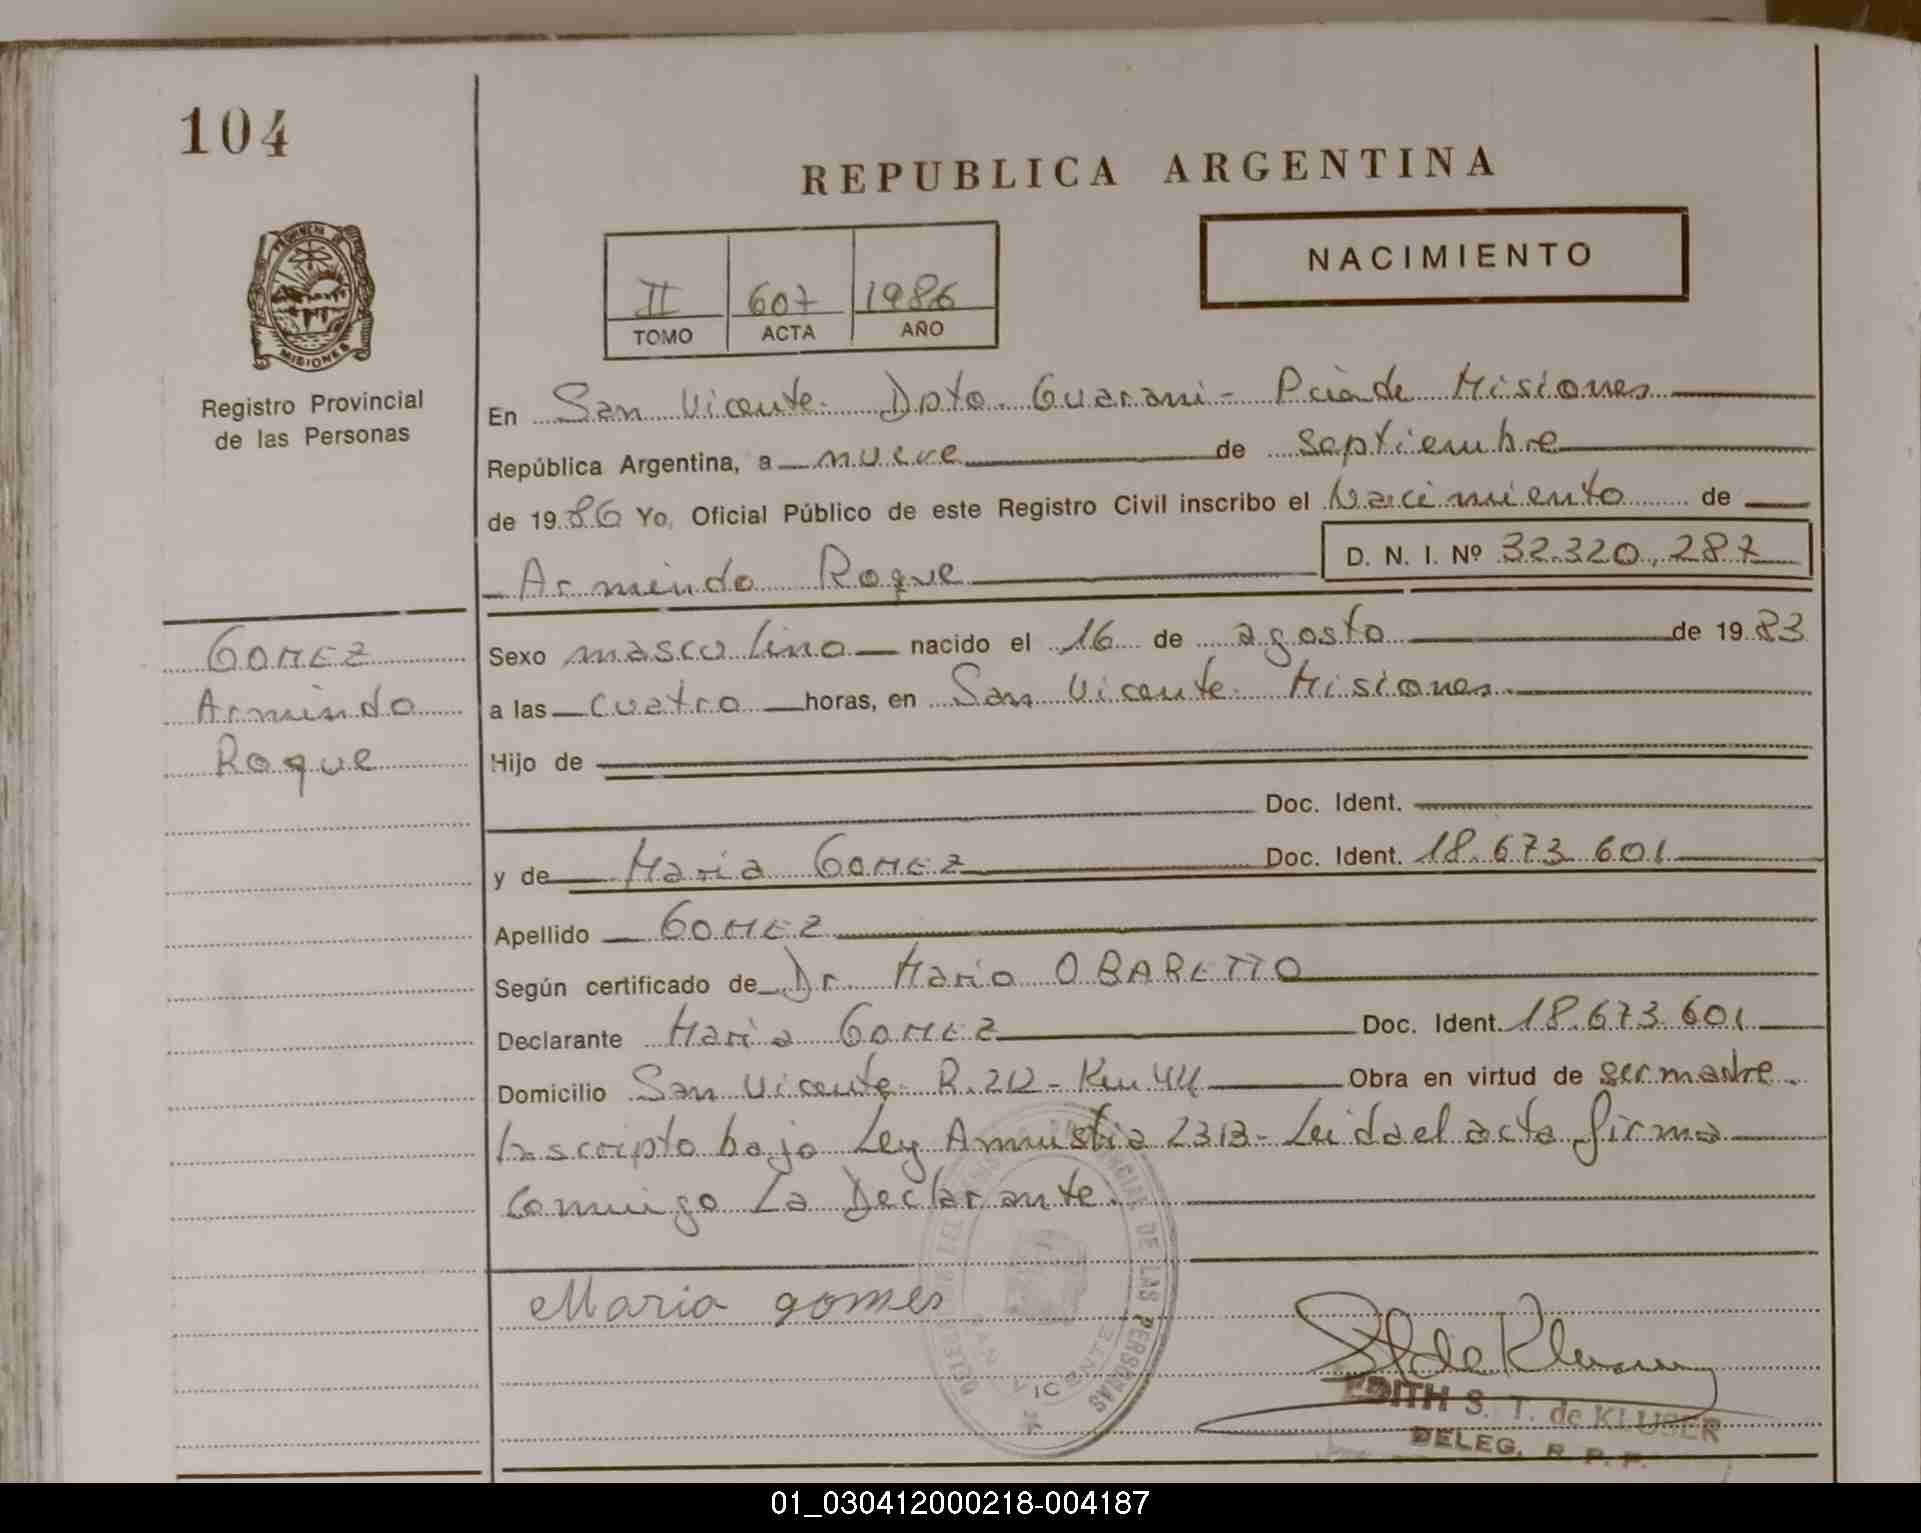 104
REPUBLICA ARGENTINA
NACIMIENTO
II 607 1986
TOMO ACTA AÑO
PROVINCIA DE
MISIONES
Registro Provincial
de las Personas
En San Vicente. Dpto. Guarani - Pcia de Misiones
República Argentina, a nueve de septiembre
de 1986 Yo, Oficial Público de este Registro Civil inscribo el Nacimiento de
Armindo Roque D. N. I. Nº 32.320.287
GOMEZ
Armindo
Roque
Sexo masculino nacido el 16 de agosto de 1983
a las cuatro horas, en San Vicente. Misiones
Hijo de
Doc. Ident.
y de Maria GOMEZ Doc. Ident. 18.673.601
Apellido GOMEZ
Según certificado de Dr. Mario OBARETTO
Declarante Maria GOMEZ Doc. Ident. 18.673.601
Domicilio San Vicente - R. 212 - Km 44 Obra en virtud de ser madre.
Inscripto bajo Ley Amnistia 2313 - Leida el acta firma
conmigo La Declarante.
Maria gomes
DE LAS PERSONAS
SAN VICENTE
EDITH S. T. de KLUSER
DELEG. R. P. P.
01_030412000218-004187